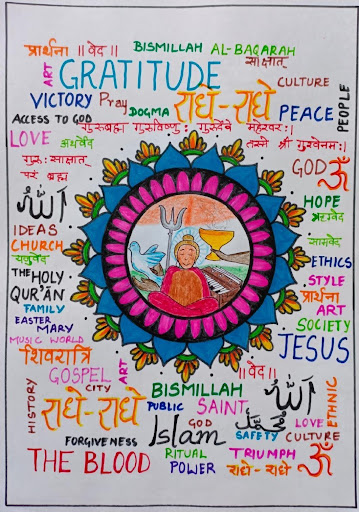 प्रार्थना ॥ वेद ॥ BISMILLAH AL-BAQARAH
साक्षात्
ART GRATITUDE CULTURE
VICTORY Pray DOGMA राधे-राधे PEACE PEOPLE
ACCESS TO GOD
LOVE गुरुब्रह्मा गुरुविष्णु: गुरुर्देवो महेश्वर:।
अथर्ववेद तस्मै श्री गुरुवेनमः।
गुरु: साक्षात् GOD ॐ
परं ब्रह्म
الله HOPE
IDEAS
CHURCH सामवेद
यजुर्वेद ETHICS
THE HOLY STYLE
QUR'ĀN प्रार्थना
FAMILY ART
EASTER SOCIETY
MARY
MUSIC WORLD JESUS
शिवरात्रि ॥ वेद ॥
GOSPEL ART
CITY BISMILLAH الله ETHNIC
HISTORY राधे-राधे PUBLIC SAINT
GOD محمد LOVE
FORGIVENESS Islam SAFETY CULTURE
THE BLOOD RITUAL TRIUMPH ॐ
POWER राधे-राधे